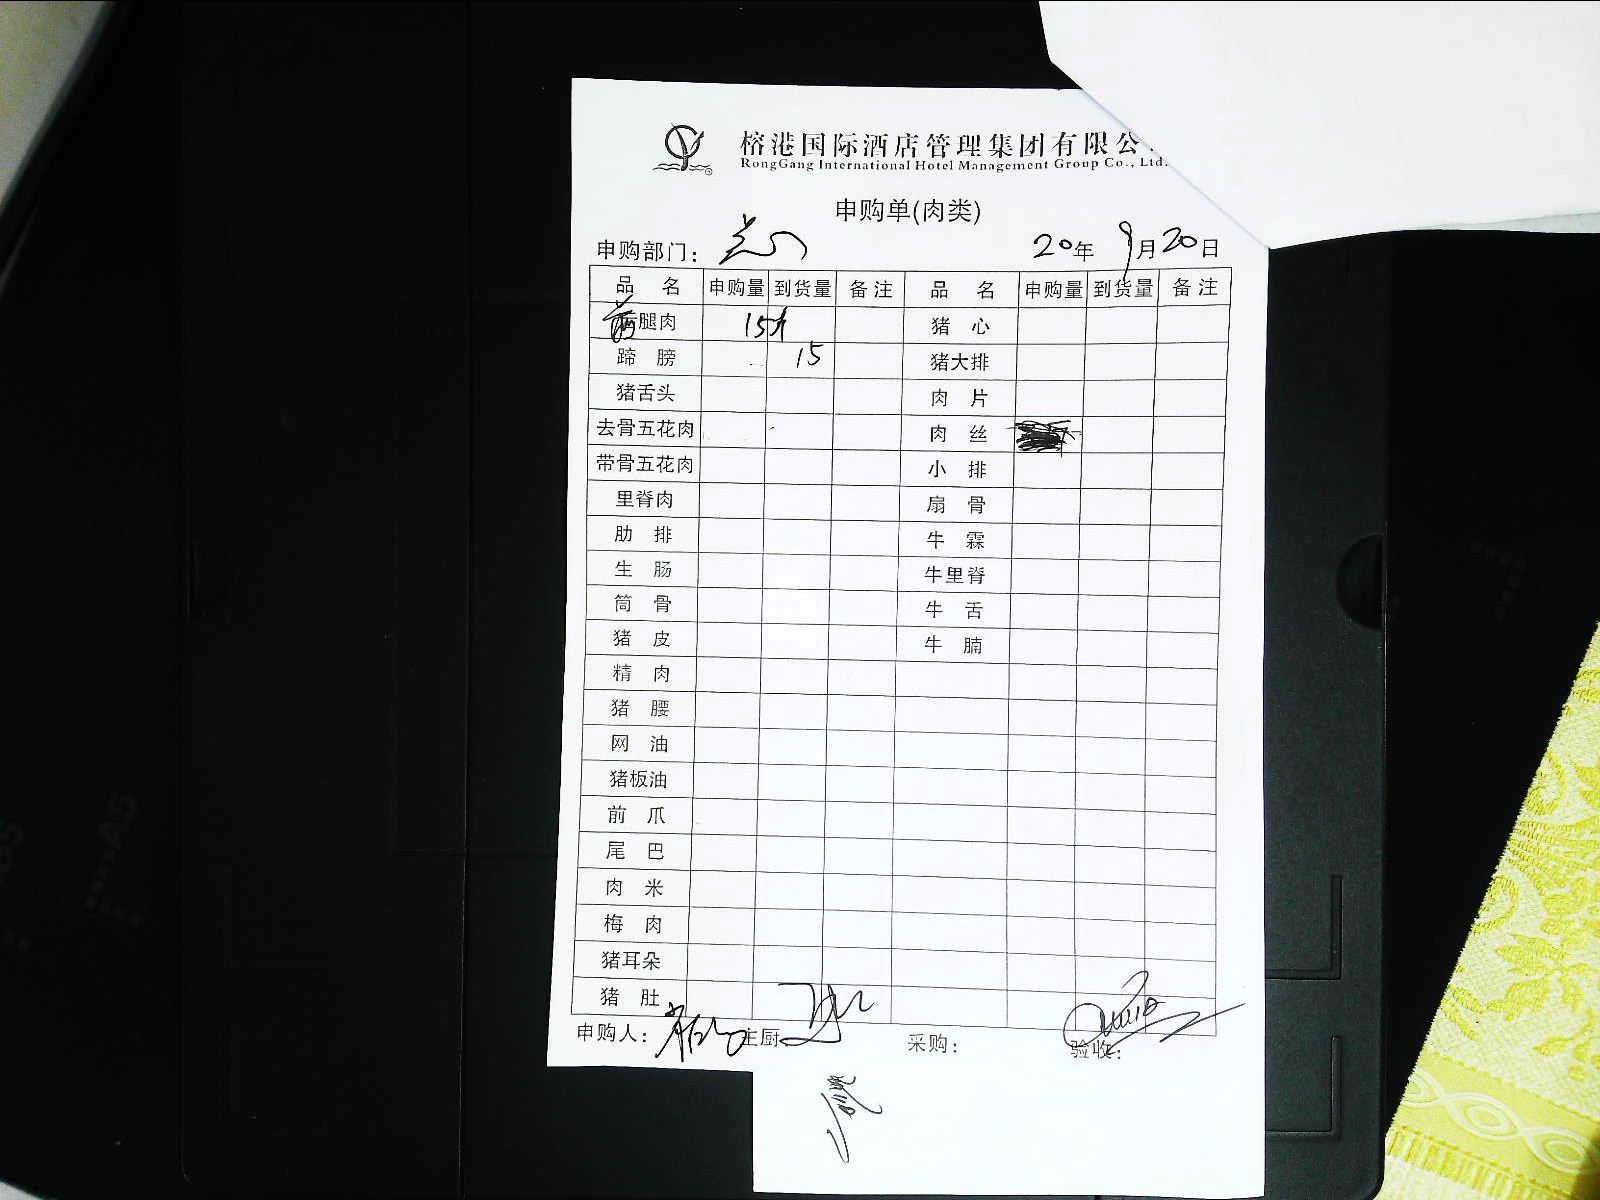 榕港国际酒店管理集团有限公
RongGang International Hotel Management Group Co., Ltd.
申购单(肉类)
申购部门： 20年 9月20日
品 名 申购量 到货量 备注 品 名 申购量 到货量 备注
前腿肉 15斤 猪 心
蹄 膀 15 猪大排
猪舌头 肉 片
去骨五花肉 肉 丝
带骨五花肉 小 排
里脊肉 扇 骨
肋 排 牛 霖
生 肠 牛里脊
筒 骨 牛 舌
猪 皮 牛 腩
精 肉
猪 腰
网 油
猪板油
前 爪
尾 巴
肉 米
梅 肉
猪耳朵
猪 肚
申购人： 主厨： 采购： 验收：